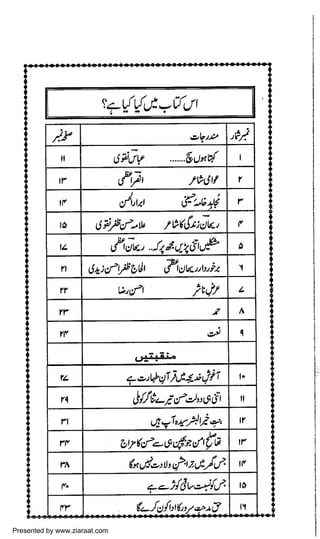 اس کتاب میں کیا کیا ہے؟
نمبر شمار مندرجات صفحہ نمبر
۱ کہتا ہوں سچ ....... عباس نقوی ۱۱
۲ عوامی شاعر انصر اعظمی ۱۳
۳ مجاہد خامہ حسینی ابرار الحسن ۱۴
۴ ریحان زندگی کا شاعر علامہ حسن ظفر نقوی ۱۵
۵ مشکلیں اتنی پڑیں مجھ پہ کہ.. ریحان اعظمی ۱۷
۶ برخوردار ریحان اعظمی الحاج ظفر احسن زیدی ۲۱
۷ عرضِ ناشر احسن رضا ۲۲
۸ حمد ۲۳
۹ نعت ۲۴
منقبتیں
۱۰ آغوشِ خدیجہ میں قرآنِ طہارت ہے ۲۷
۱۱ اتنی ہی دولت حسن تیرے ثناگر کو ملی ۲۹
۱۲ بنتِ خیر البشر سیدہ آپ ہیں ۳۱
۱۳ تھا صلح امن جو بچپن ہی سے حسن کا مزاج ۳۴
۱۴ جس گھر میں ترا جشنِ ولادت نہیں ہوگا ۳۸
۱۵ جس کو نسبت ساقیِ کوثر سے ہے ۴۰
۱۶ حق مدحتِ سرور کا ادا کون کرے گا ۴۳
Presented by www.ziaraat.com